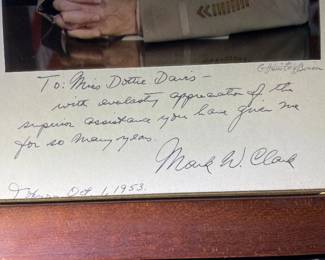 To: Miss Dottie Davis -
with everlasting appreciation of the
superior assistance you have given me
for so many years.
Mark W. Clark
Tokyo Oct. 1, 1953.